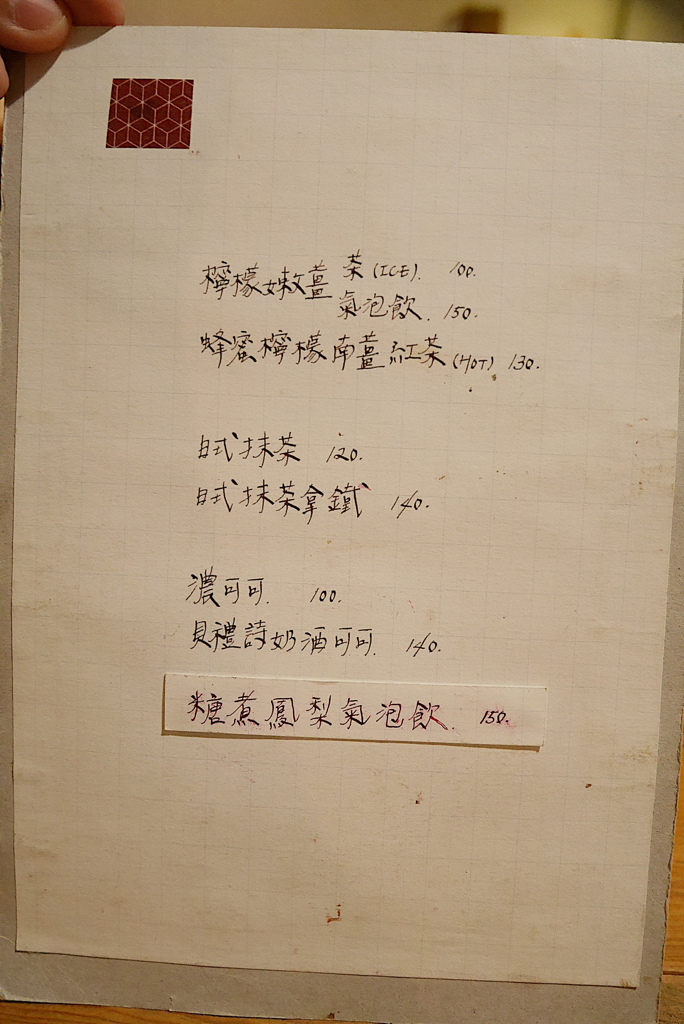 檸檬嫩薑 茶 (ICE). 100.
氣泡飲. 150.
蜂蜜檸檬南薑紅茶 (HOT) 130.
日式抹茶 120.
日式抹茶拿鐵 140.
濃可可. 100.
貝禮詩奶酒可可. 140.
糖煮鳳梨氣泡飲. 150.